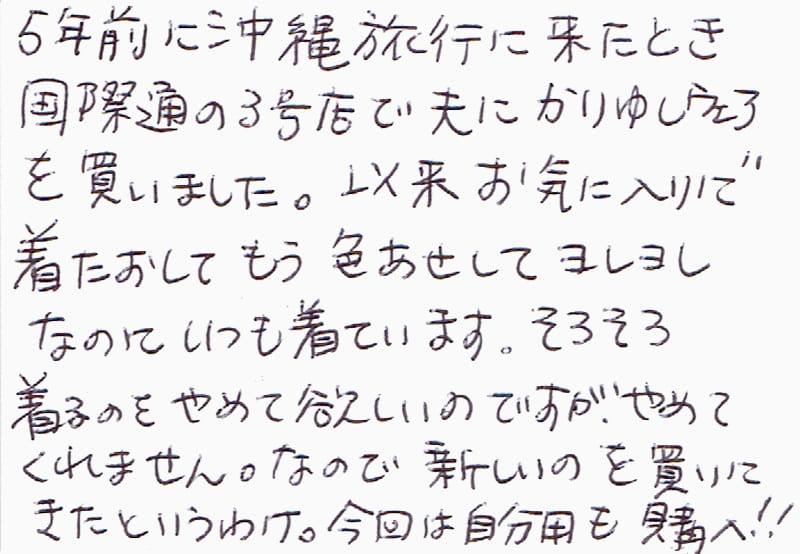 5年前に沖縄旅行に来たとき
国際通の3号店で夫にかりゆしウェア
を買いました。以来お気に入りで
着たおしてもう色あせしてヨレヨレ
なのにいつも着ています。そろそろ
着るのをやめて欲しいのですが、やめて
くれません。なので新しいのを買いに
きたというわけ。今回は自分用も購入!!